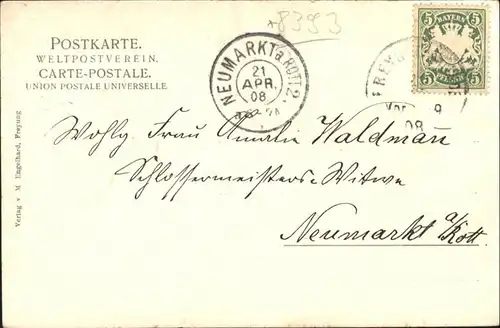 8393
POSTKARTE.
WELTPOSTVEREIN.
CARTE-POSTALE.
UNION POSTALE UNIVERSELLE
NEUMARKT a ROTT 2.
21
APR.
08
5 BAYERN 5
5 5
FREY
Vor 9
08
Wohlg Frau Amalie Waldman
Schlossermeisters-Witwe
Neumarkt a/Rott
Verlag v M Engelhard, Freyung